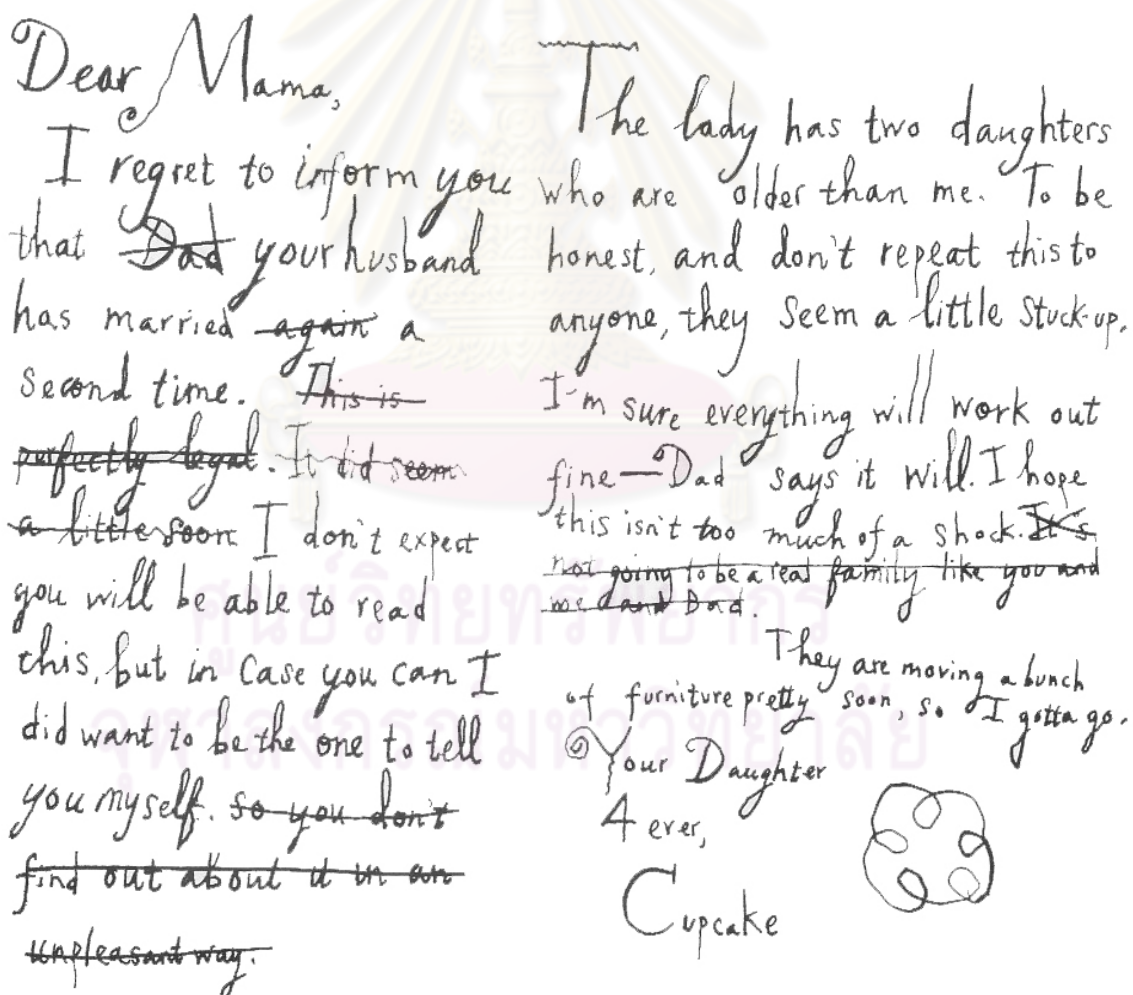 Dear Mama,
I regret to inform you
that Dad your husband
has married again a
second time. This is
perfectly legal. It did seem
a little soon I don't expect
you will be able to read
this, but in case you can I
did want to be the one to tell
you myself. so you don't
find out about it in an
unpleasant way.
The lady has two daughters
who are older than me. To be
honest, and don't repeat this to
anyone, they seem a little stuck-up.
I'm sure everything will work out
fine—Dad says it will. I hope
this isn't too much of a shock. It's
not going to be a real family like you and
me and Dad.
They are moving a bunch
of furniture pretty soon, so I gotta go.
Your Daughter
4 ever,
Cupcake
ศูนย์วิทยทรัพยากร
จุฬาลงกรณ์มหาวิทยาลัย